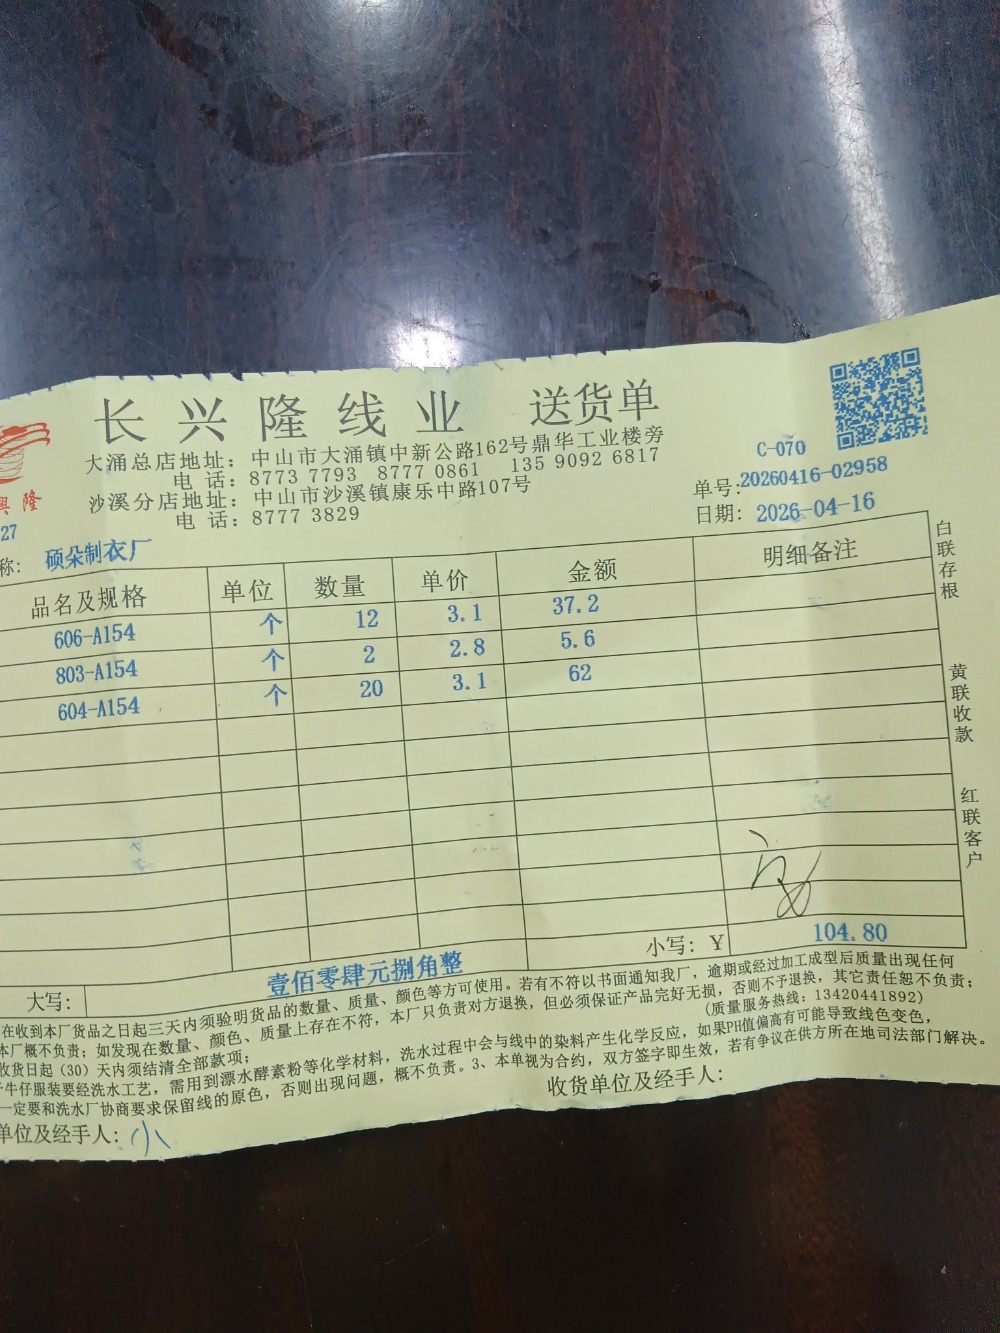 长兴隆线业 送货单
大涌总店地址：中山市大涌镇中新公路162号鼎华工业楼旁
电 话：8773 7793 8777 0861 135 9092 6817
沙溪分店地址：中山市沙溪镇康乐中路107号
电 话：8777 3829
興隆
27
C-070
单号:20260416-02958
日期: 2026-04-16
称: 硕朵制衣厂
品名及规格 单位 数量 单价 金额 明细备注
606-A154 个 12 3.1 37.2
803-A154 个 2 2.8 5.6
604-A154 个 20 3.1 62
小写：Y 104.80
大写： 壹佰零肆元捌角整
在收到本厂货品之日起三天内须验明货品的数量、质量、颜色等方可使用。若有不符以书面通知我厂，逾期或经过加工成型后质量出现任何
本厂概不负责；如发现在数量、颜色、质量上存在不符，本厂只负责对方退换，但必须保证产品完好无损，否则不予退换，其它责任恕不负责；
收货日起（30）天内须结清全部款项； （质量服务热线：13420441892）
牛仔服装要经洗水工艺，需用到漂水酵素粉等化学材料，洗水过程中会与线中的染料产生化学反应，如果PH值偏高有可能导致线色变色，
一定要和洗水厂协商要求保留线的原色，否则出现问题，概不负责。3、本单视为合约，双方签字即生效，若有争议在供方所在地司法部门解决。
单位及经手人：小 收货单位及经手人：
白联存根
黄联收款
红联客户